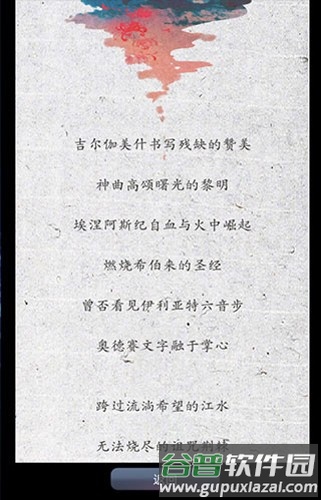 吉尔伽美什书写残缺的赞美
神曲高颂曙光的黎明
埃涅阿斯纪自血与火中崛起
燃烧希伯来的圣经
曾否看见伊利亚特六音步
奥德赛文字融于掌心
跨过流淌希望的江水
无法烧尽的诅咒荆棘
谷普软件园
www.gupuxlazal.com